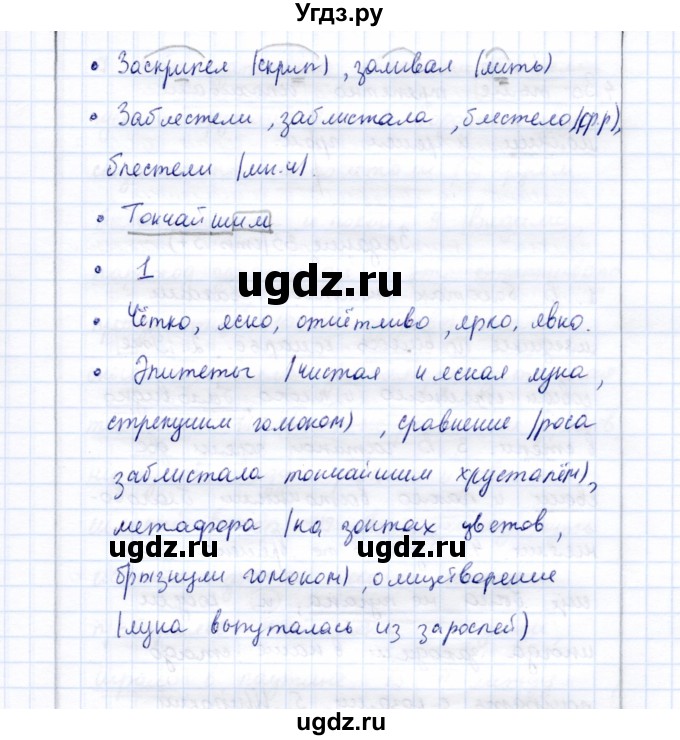 Угдз.ру
• Заскрипел (скрип), заливал (лить)
• Заблестели, заблистала, блестело (ф.р),
блестели (мн.ч).
• Тончайшим
• 1
ugdz.ru
• Чётко, ясно, отчётливо, ярко, явно.
• Эпитеты (чистая и ясная луна,
стрекущим гомоном), сравнение (роса
заблистала тончайшим хрусталём),
метафора (на зонтах цветов,
ugdz.ru ugdz.ru
брызнули гомоном), олицетворение
(луна выпуталась из зарослей)
ugdz.ru